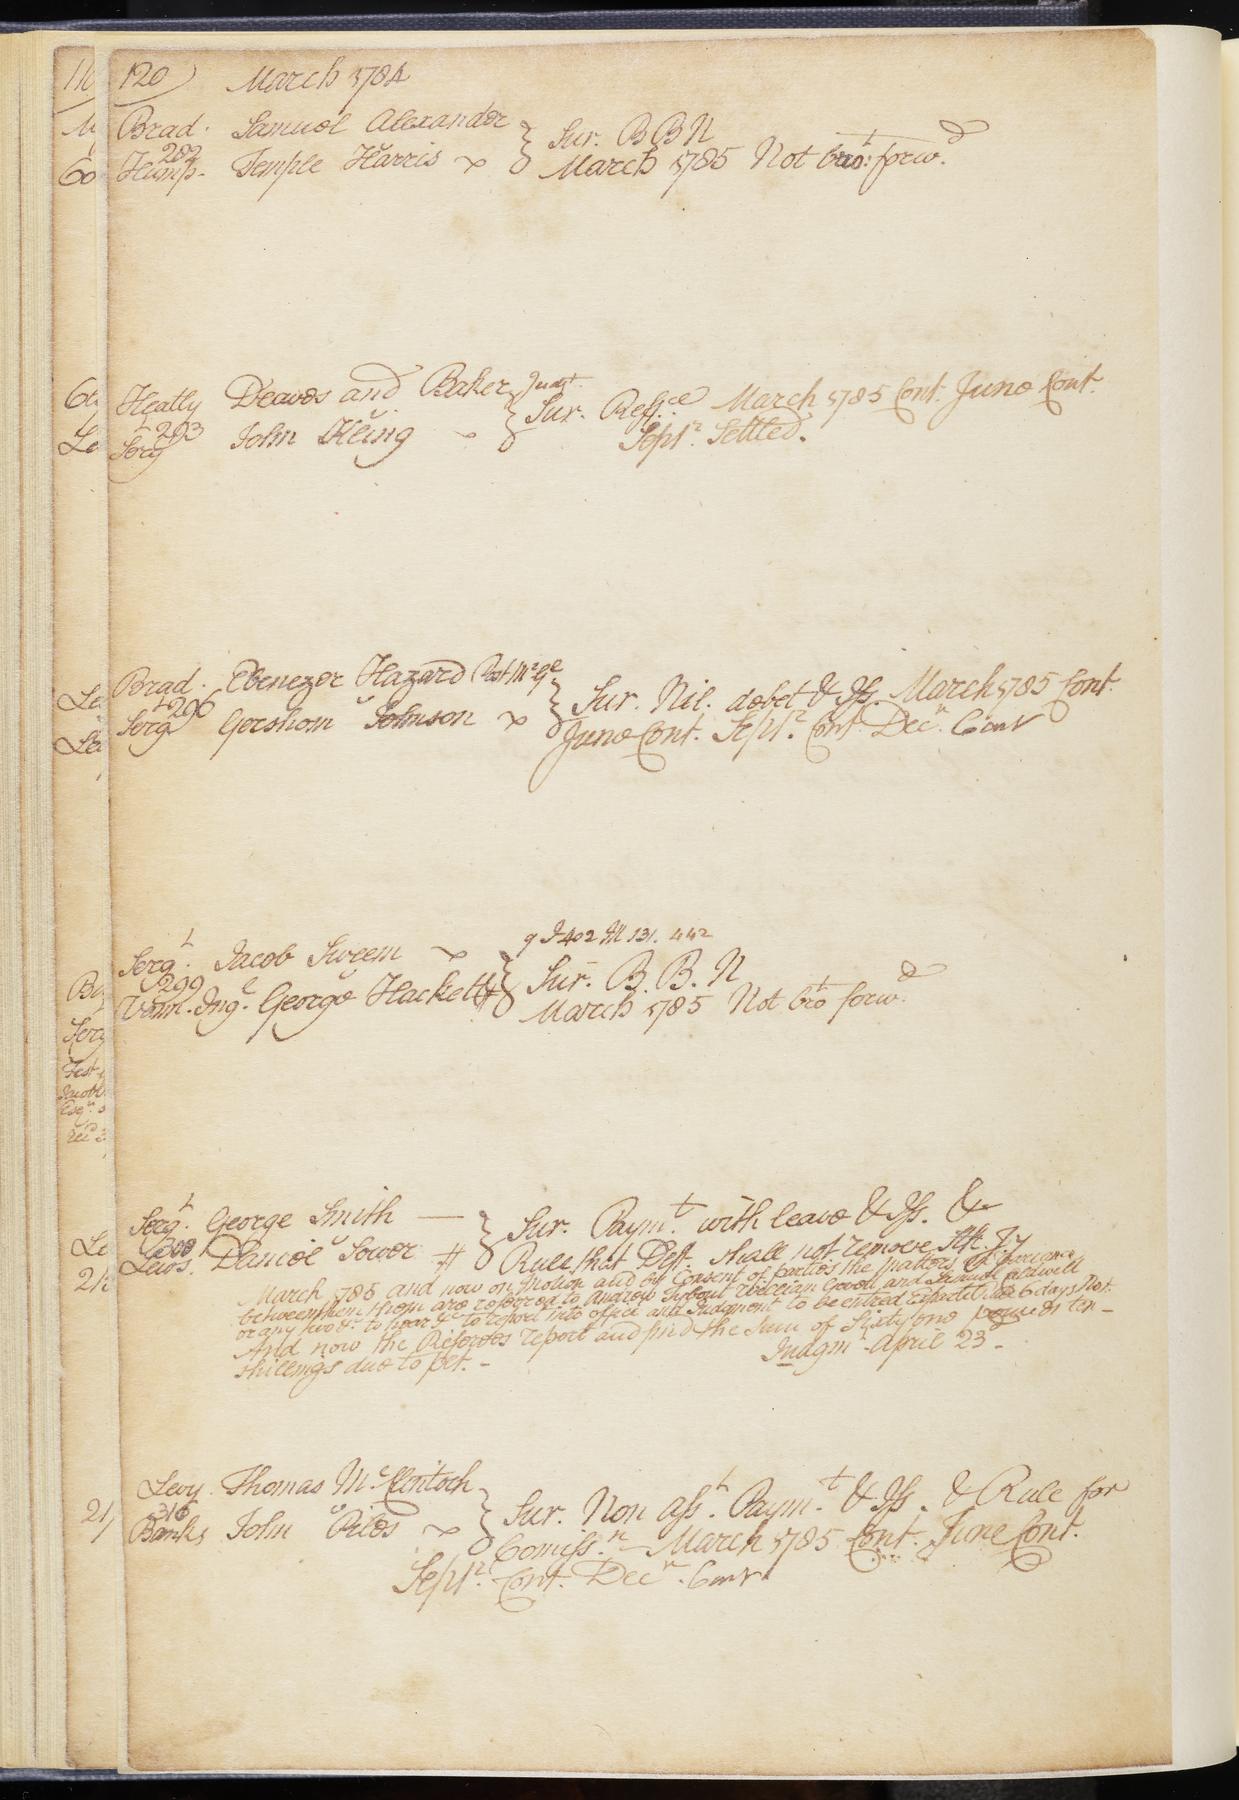 120 March 1784
Brad. Samuel Alexander
Sur. B B N
282
Hump. v Temple Harris
March 1785 Not bro.t forw.d
Heatly Deaves and Baker Judgt.
Sur. Ref.ce March 1785 Cont. June Cont.
293
Serg.t v John King
Sept.r Settled.
Brad. Ebenezer Hazard Post M.r G.l
Sur. Nil. debet & Iss. March 1785 Cont.
296
Serg.t v Gershom Johnson
June Cont. Sept.r Cont. Dec.r Cont
9 I 402 M 131. 442
Serg.t Jacob Sweem
Sur. B. B. N
299
Vann. Ing. v George Hackett
March 1785 Not bro.t forw.d
Serg.t George Smith
Sur. Paym.t with leave & Iss. &
300
Lewis. v Daniel Sower
Rule that Deft. shall not remove
March 1785 and now on Motion and by Consent of parties the Matters in Variance
between them are referred to Andrew William and Caldwell
or any two & to hear &c to report into office and Judgment to be entred 6 days Not.
And now the Referees report and find the Sum of Sixty one pounds ten
shillings due to pet.
Judgm.t April 23
Levy. Thomas M.cClintock
Sur. Non ass.t Paym.t & Iss. & Rule for
316
Banks v John Piles
Comiss.n March 1785 Cont. June Cont.
Sept.r Cont. Dec.r Cont